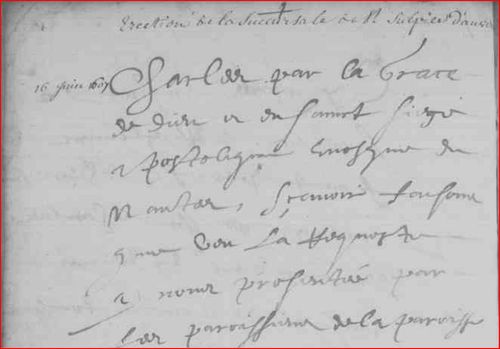 Erection de la Succursale de St Sulpice d'auv
16 juin 1607
Charles par la Grace
de dieu et du sainct siege
apostolique Evesque de
Nantes, Sçavoir faisons
que veu la Requeste
a nous presentée par
les paroissiens de la paroisse